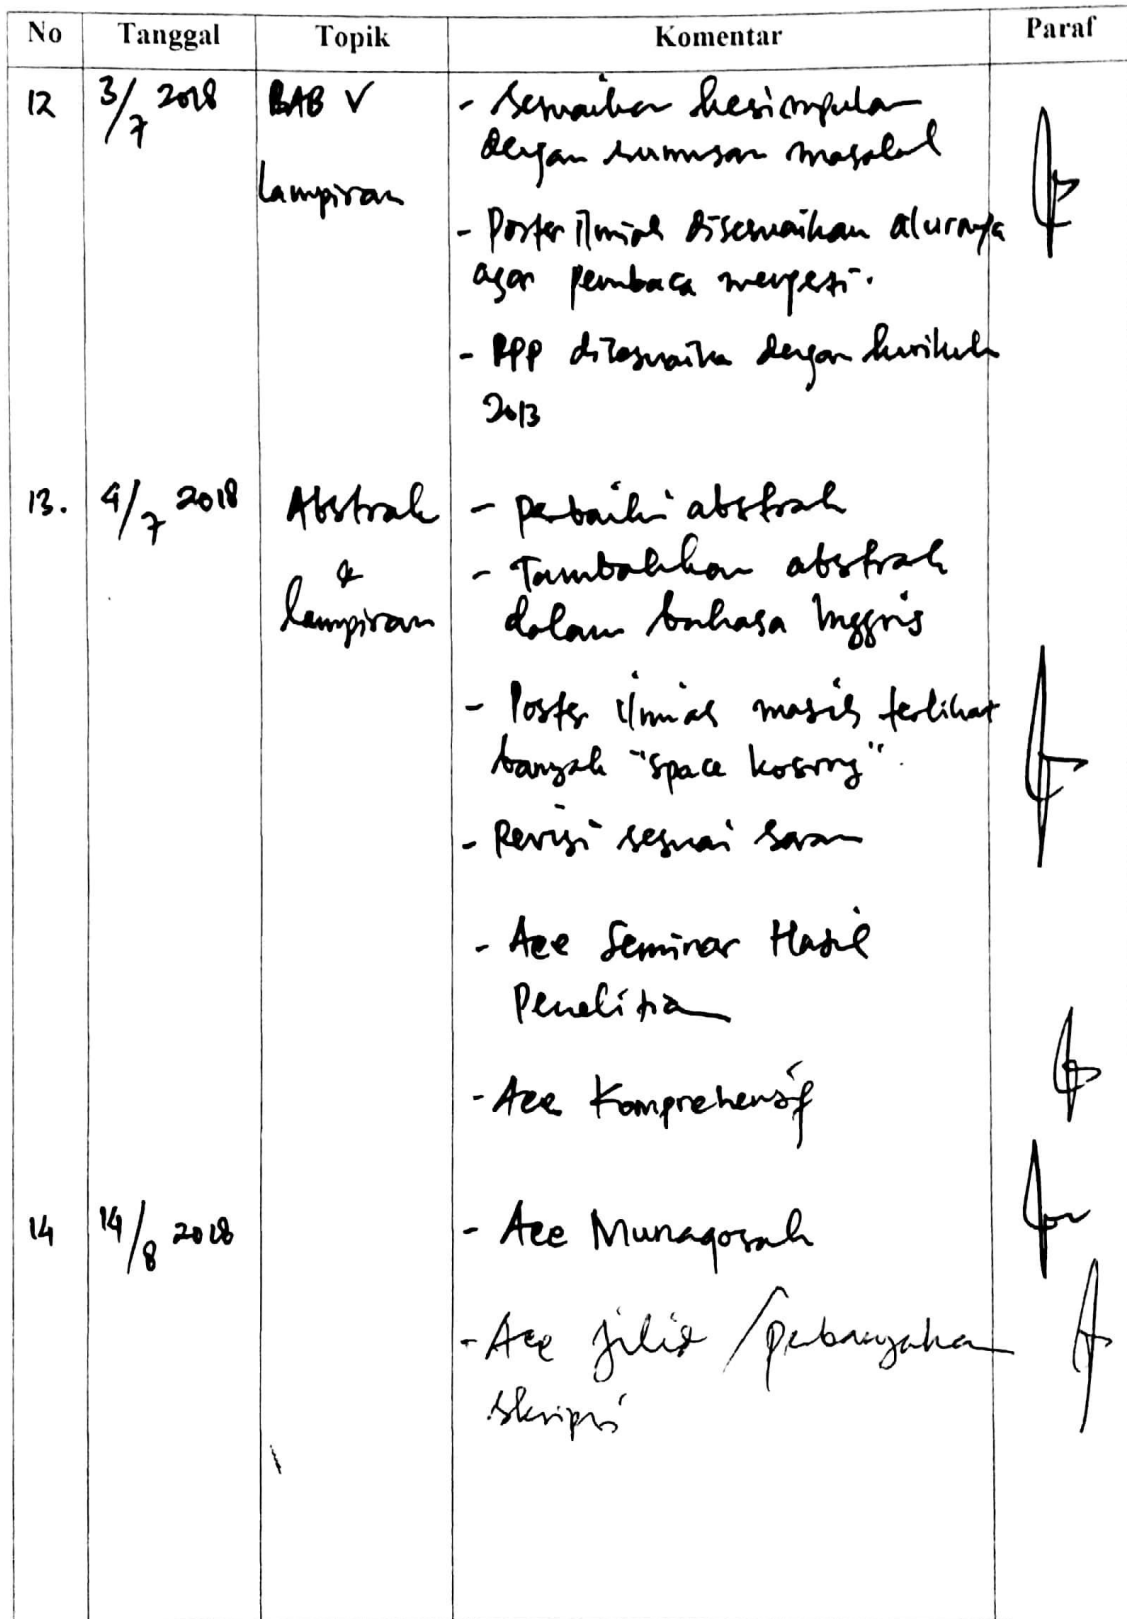 No Tanggal Topik Komentar Paraf
12 3/7 2018 BAB V - Sesuaikan kesimpulan
dengan rumusan masalah
Lampiran
- Poster ilmiah disesuaikan alurnya
agar pembaca mengerti.
- RPP disesuaikan dengan kurikulum
2013
13. 4/7 2018 Abstrak - perbaiki abstrak
& - Tambahkan abstrak
lampiran dalam bahasa Inggris
- Poster ilmiah masih terlihat
banyak "space kosong".
- Revisi sesuai saran
- Acc Seminar Hasil
Penelitian
- Acc Komprehensif
14 14/8 2018 - Acc Munaqosah
- Acc jilid / perbanyakan
skripsi